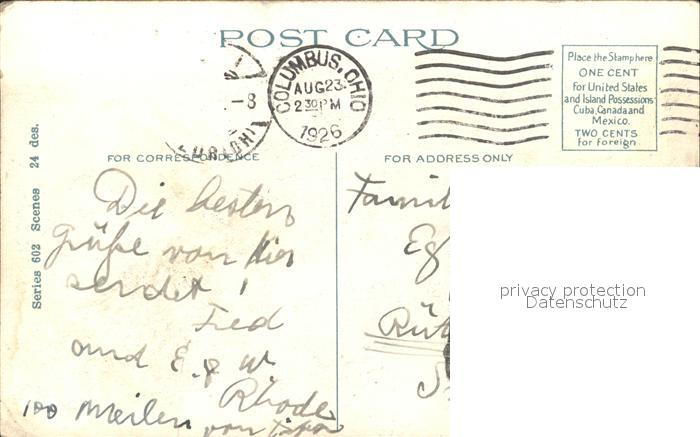 POST CARD
COLUMBUS, OHIO
AUG 23
2 30 PM
1926
-8
Place the Stamp here
ONE CENT
For United States
and Island Possessions
Cuba, Canada and
Mexico.
TWO CENTS
for foreign.
Series 602 Scenes 24 des.
FOR CORRESPONDENCE
FOR ADDRESS ONLY
Die besten
Grüße von hier
sendet!
Fred
und E. & W.
Rhode
100 Meilen von
Famil
Eg
Rüt
privacy protection
Datenschutz